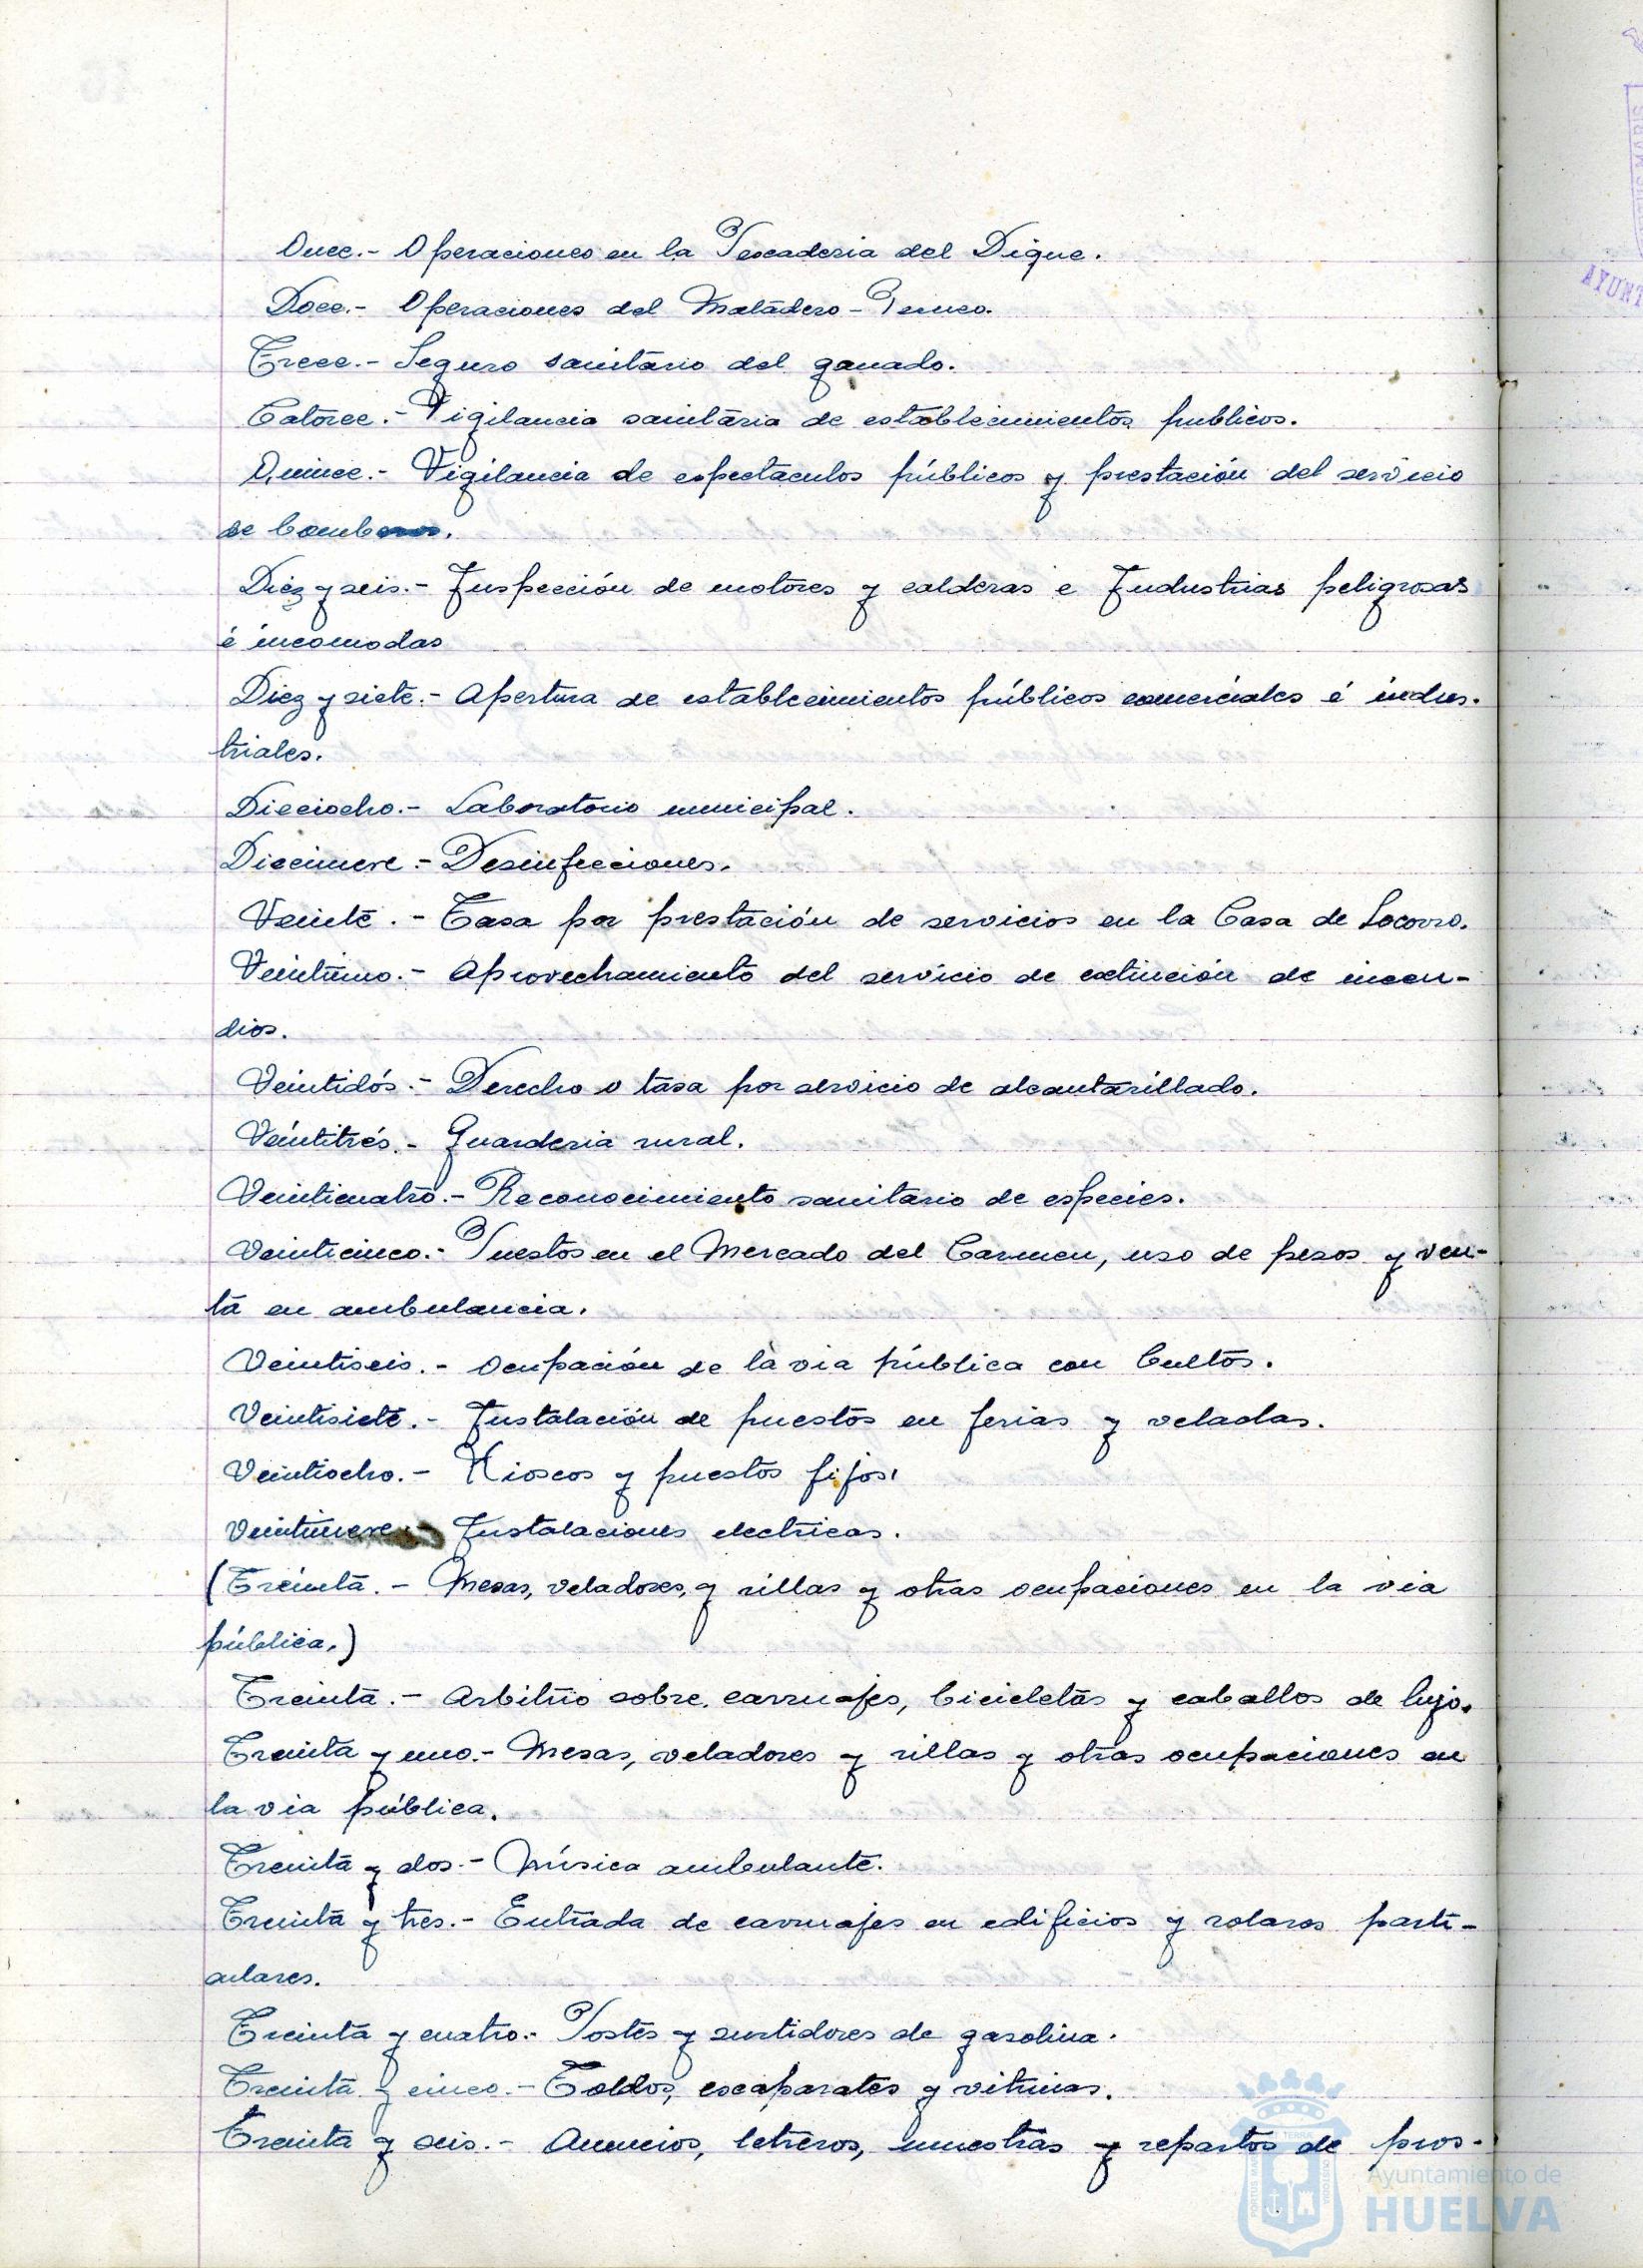 Once.- Operaciones en la Pescaderia del Dique.
Doce.- Operaciones del Matadero-
Trece.- Seguro sanitario del ganado.
Catorce.- Vigilancia sanitaria de establecimientos publicos.
Quince.- Vigilancia de espectaculos públicos y prestación del servicio
de bomberos.
Diez y seis.- Inspección de motores y calderas e Industrias peligrosas
é incomodas
Diez y siete.- Apertura de establecimientos públicos comerciales é indus-
triales.
Dieciocho.- Laboratorio municipal.
Diecinueve.- Desinfecciones.
Veinte.- Tasa por prestación de servicios en la Casa de Socorro.
Veintiuno.- Aprovechamiento del servicio de extinción de incen-
dios.
Veintidós.- Derecho o tasa por servicio de alcantarillado.
Veintitrés.- Guarderia rural.
Veinticuatro.- Reconocimiento sanitario de especies.
Veinticinco.- Puestos en el Mercado del Carmen, uso de pesos y ven-
ta en ambulancia.
Veintiseis.- Ocupación de la via pública con bultos.
Veintisiete.- Instalación de puestos en ferias y veladas.
Veintiocho.- Kioscos y puestos fijos.
Veintinueve.- Instalaciones electricas.
(Treinta.- Mesas, veladores, y sillas y otras ocupaciones en la via
pública.)
Treinta.- Arbitrio sobre carruajes, bicicletas y caballos de lujo.
Treinta y uno.- Mesas, veladores y sillas y otras ocupaciones en
la via pública.
Treinta y dos.- Música ambulante.
Treinta y tres.- Entrada de carruajes en edificios y solares parti-
culares.
Treinta y cuatro.- Postes y surtidores de gasolina.
Treinta y cinco.- Toldos, escaparates y vitrinas.
Treinta y seis.- Anuncios, letreros, muestras y repartos de pros-
Ayuntamiento de
HUELVA